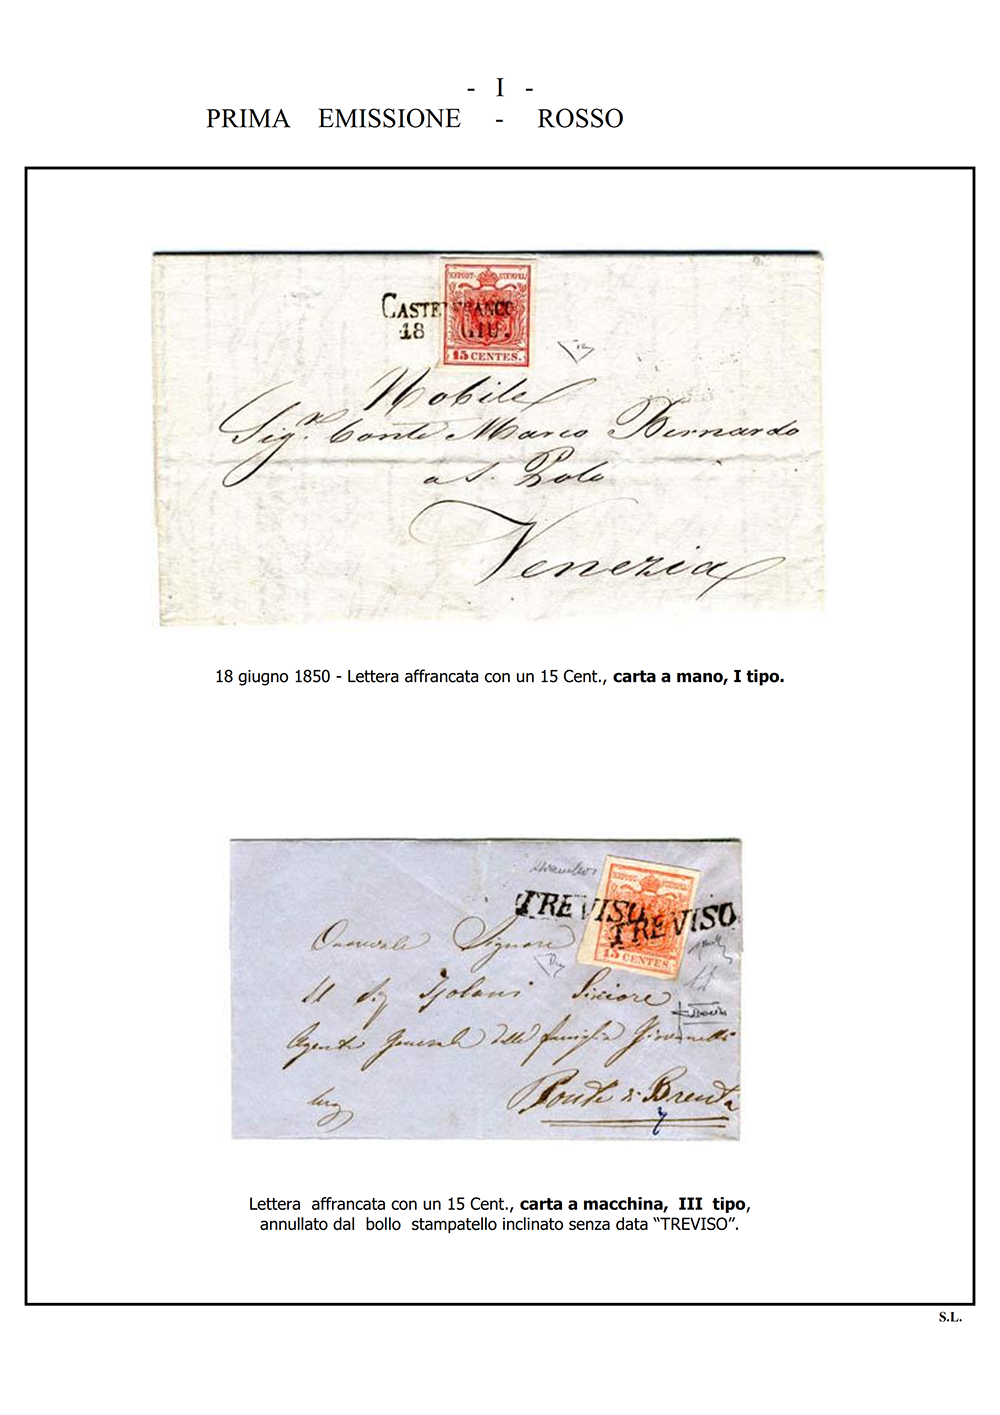 - I -
PRIMA EMISSIONE - ROSSO
KK.POST-STEMPEL
CASTELFRANCO
18 GIU.
15 CENTES.
Nobile
Sigr. Conte Marco Bernardo
a S. Polo
Venezia
18 giugno 1850 - Lettera affrancata con un 15 Cent., carta a mano, I tipo.
KK.POST-STEMPEL
TREVISO TREVISO
15 CENTES.
Signore
Il Sig
Agente Generale della famiglia Giovanelli
Ponte di Brenta
Lettera affrancata con un 15 Cent., carta a macchina, III tipo,
annullato dal bollo stampatello inclinato senza data “TREVISO”.
S.L.